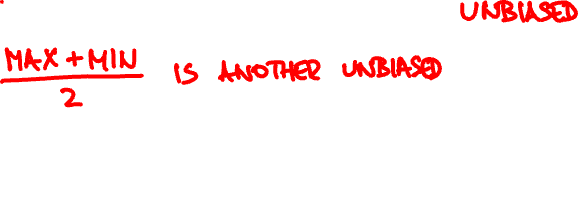 UNBIASED
MAX + MIN
2
IS ANOTHER UNBIASED